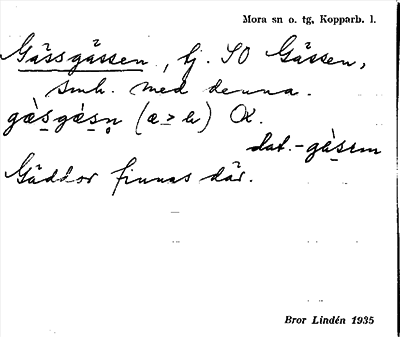 Mora sn o. tg, Kopparb. l.
Gässgässen, tj. SO Gässen,
smh. med denna.
gæ̀s̠gæ̀s̠n̥ (æ > ä) Α.
dat. -gæ̀s̠em
Gäddor finnas där.
Bror Lindén 1935